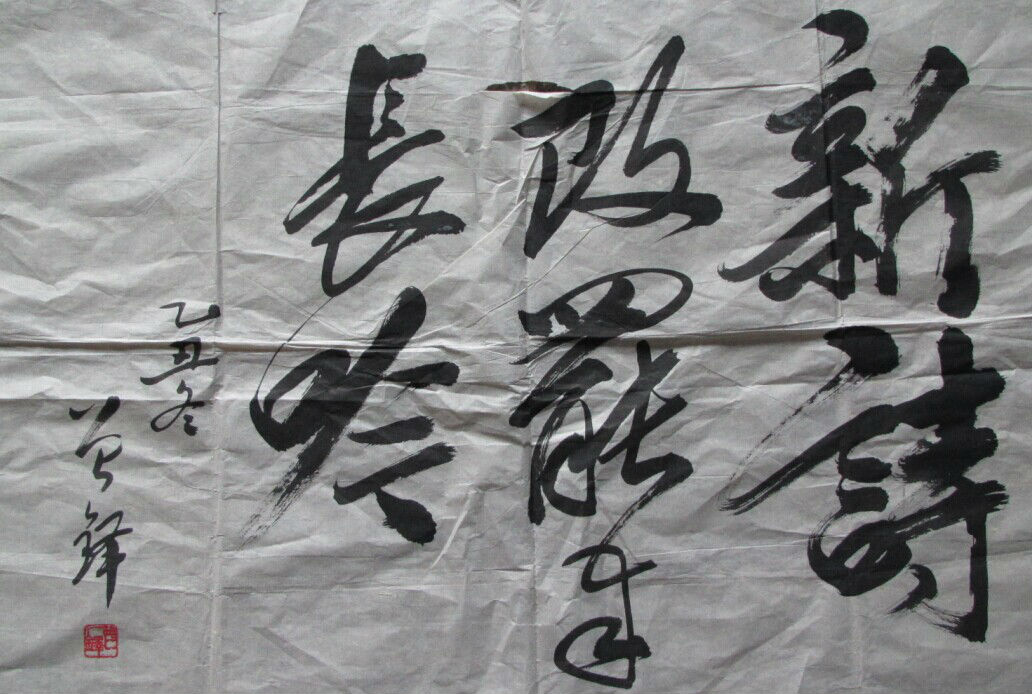 新詩
改罷自
長吟
乙丑冬
曾鐸